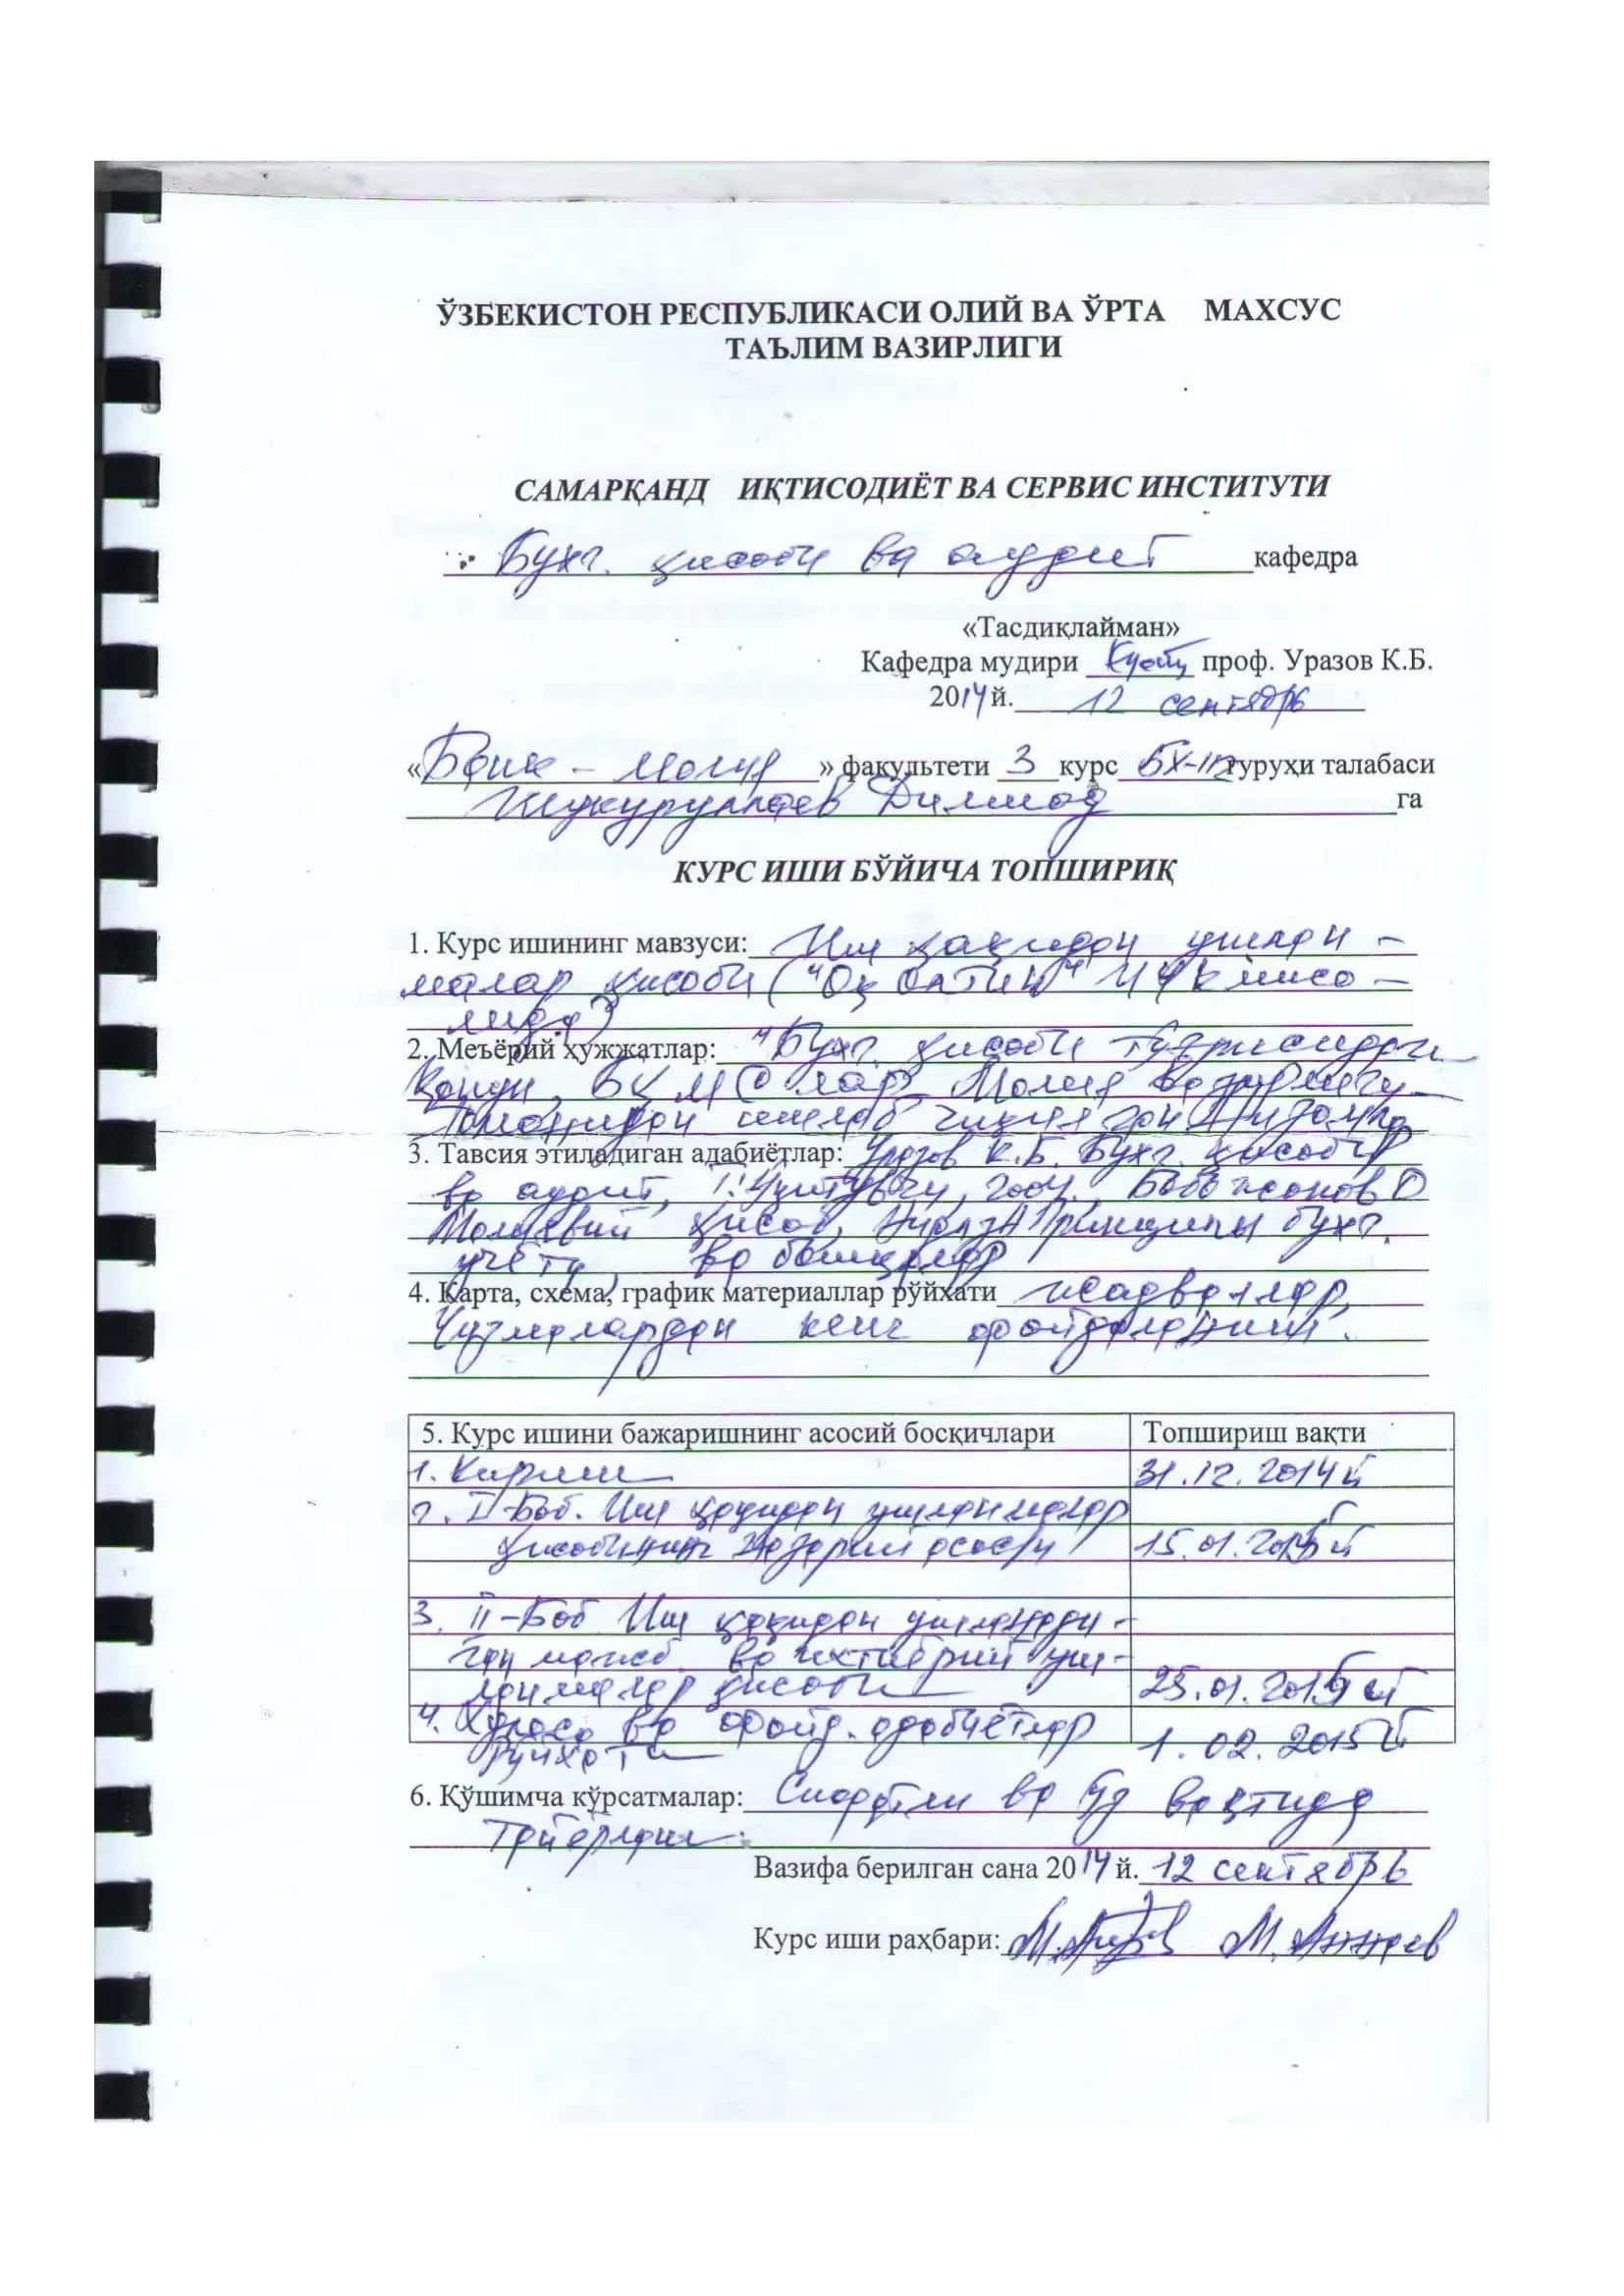 ЎЗБЕКИСТОН РЕСПУБЛИКАСИ ОЛИЙ ВА ЎРТА МАХСУС
ТАЪЛИМ ВАЗИРЛИГИ
САМАРҚАНД ИҚТИСОДИЁТ ВА СЕРВИС ИНСТИТУТИ
Бухг. ҳисоби ва аудит кафедра
«Тасдиқлайман»
Кафедра мудири проф. Уразов К.Б.
2014 й. 12 сентябрь
«Банк - молия» факультети 3 курс БХ-112 гуруҳи талабаси
Шукуруллаев Дилшод га
КУРС ИШИ БЎЙИЧА ТОПШИРИҚ
1. Курс ишининг мавзуси: Иш ҳақидан ушлан-
малар ҳисоби ("Оқ олтин" мисо-
лида)
2. Меъёрий ҳужжатлар: "Бухг. ҳисоби тўғрисидаги
Қонун, БҲМС лар, Молия вазирлиги
томонидан ишлаб чиқилган
3. Тавсия этиладиган адабиётлар: Уразов К.Б. Бухг. ҳисоби
ва аудит, Т. Ўқитувчи, 2004., Бобожонов О
Молиявий ҳисоб, Принципы бухг.
учёта, ва бошқалар
4. Карта, схема, график материаллар рўйхати жадваллар,
Чизмалардан кенг фойдаланинг.
5. Курс ишини бажаришнинг асосий босқичлари Топшириш вақти
1. Кириш 31.12.2014 й
2. I-Боб. Иш ҳақидан ушланмалар
ҳисобининг назарий асоси 15.01.2015 й
3. II-Боб Иш ҳақидан ушланади-
ган мажб. ва ихтиёрий уш-
ланмалар ҳисоби 25.01.2015 й
4. Хулоса ва фойд. адабиётлар 1.02.2015 й
рўйхати
6. Қўшимча кўрсатмалар: Сифатли ва ўз вақтида
тайёрлаш.
Вазифа берилган сана 2014 й. 12 сентябрь
Курс иши раҳбари: